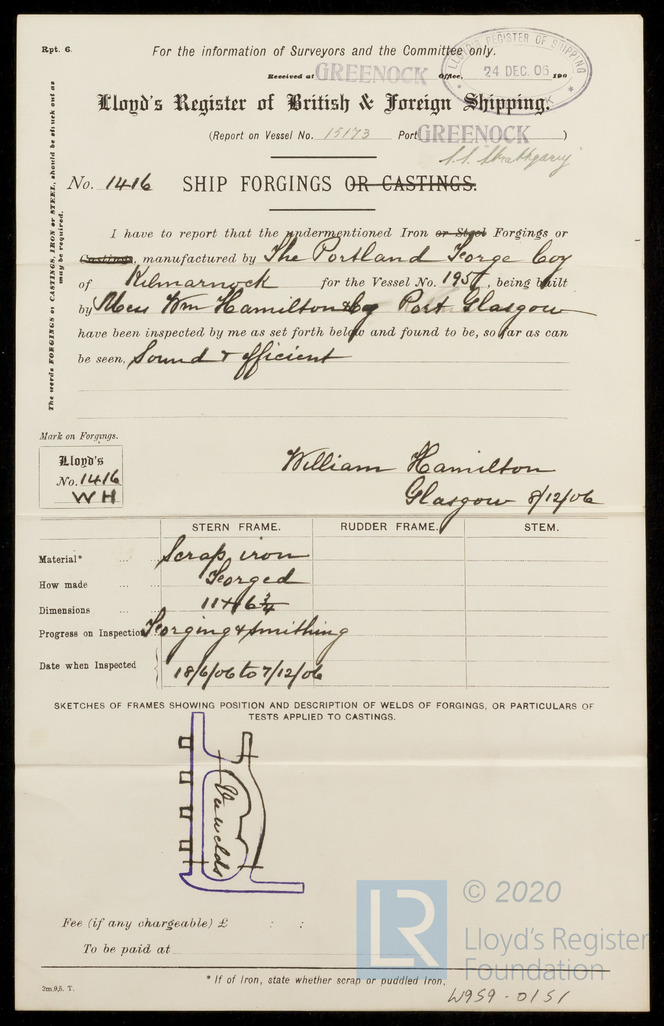 Rpt. 6.
For the information of Surveyors and the Committee only.
Received at GREENOCK Office, 190
LLOYD'S REGISTER OF SHIPPING
24 DEC. 06
Lloyd's Register of British & Foreign Shipping.
(Report on Vessel No. 15173 Port GREENOCK )
S.S. Strathgarry
No. 1416 SHIP FORGINGS OR CASTINGS.
The words FORGINGS or CASTINGS, IRON or STEEL, should be struck out as
may be required.
I have to report that the undermentioned Iron or Steel Forgings or
Castings, manufactured by The Portland Forge Coy
of Kilmarnock for the Vessel No. 195, being built
by Mess Wm Hamilton & Coy Port Glasgow
have been inspected by me as set forth below and found to be, so far as can
be seen, Sound & efficient
Mark on Forgings.
Lloyd's
No. 1416
WH
William Hamilton
Glasgow 8/12/06
STERN FRAME. RUDDER FRAME. STEM.
Material* ... ... Scrap iron
How made ... ... Forged
Dimensions ... ... 11 × 6 3/4
Progress on Inspection Forging & smithing
Date when Inspected 18/6/06 to 7/12/06
SKETCHES OF FRAMES SHOWING POSITION AND DESCRIPTION OF WELDS OF FORGINGS, OR PARTICULARS OF
TESTS APPLIED TO CASTINGS.
Vee welds
Fee (if any chargeable) £ : :
To be paid at
* If of Iron, state whether scrap or puddled Iron.
2m,9,5. T.
W959-0151
LR
© 2020
Lloyd's Register
Foundation